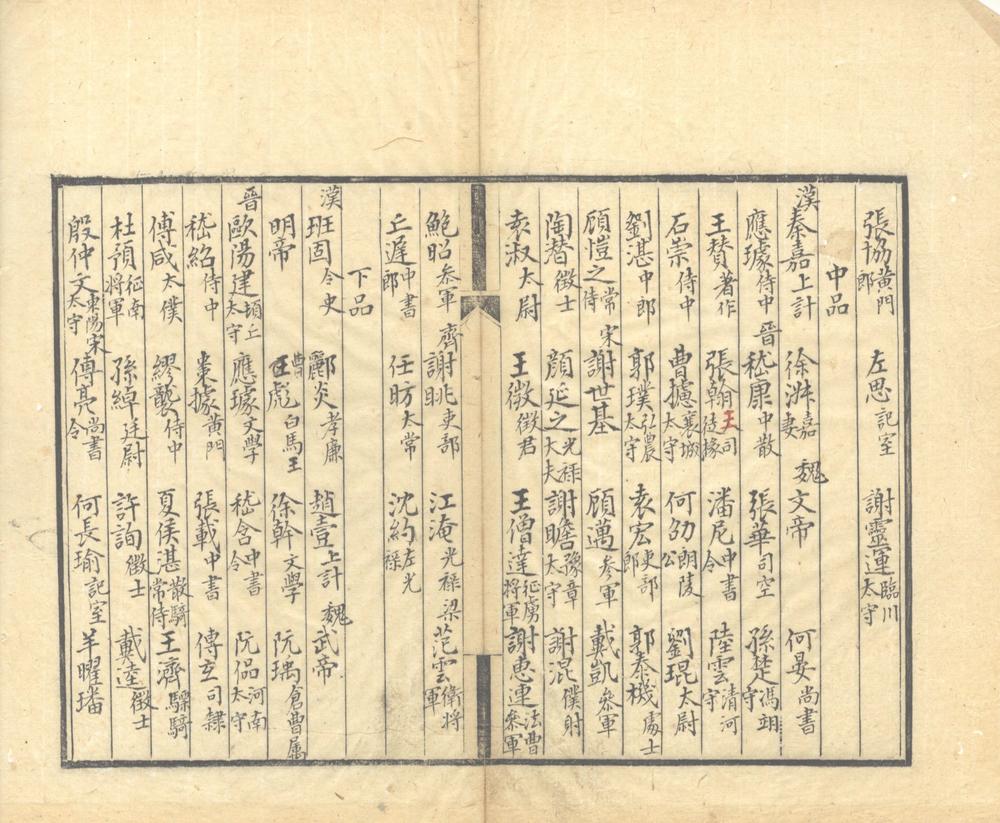 張協黃門郎 左思記室 謝靈運臨川太守
中品
漢 秦嘉上計 徐淑嘉妻 魏 文帝 何晏尚書
應璩侍中 晉 嵇康中散 張華司空 孫楚馮翊守
王贊著作 張翰王司徒掾 潘尼中書令 陸雲清河守
石崇侍中 曹攄襄城太守 何劭朗陵公 劉琨太尉
劉湛中郎 郭璞弘農太守 袁宏吏部郎 郭泰機處士
顧愷之常侍 宋 謝世基 顧邁參軍 戴凱參軍
陶替徵士 顏延之光祿大夫 謝瞻豫章太守 謝混僕射
袁淑太尉 王微徵君 王僧達征虜將軍 謝惠連法曹參軍
鮑昭參軍 齊 謝朓吏部 江淹光祿 梁 范雲衛將軍
丘遲中書郎 任昉太常 沈約左光祿
下品
漢 班固令史 酈炎孝廉 趙壹上計 魏 武帝
明帝 曹彪白馬王 徐幹文學 阮瑀倉曹属
晉 歐陽建頓丘太守 應璩文學 嵇含中書令 阮偘河南太守
嵇紹侍中 棗據黃門 張載中書 傅玄司隸
傅咸太僕 繆襲侍中 夏侯湛散騎常侍 王濟驃騎
杜預征南將軍 孫綽廷尉 許詢徵士 戴逵徵士
殷仲文東陽太守 宋 傅亮尚書令 何長瑜記室 羊曜璠